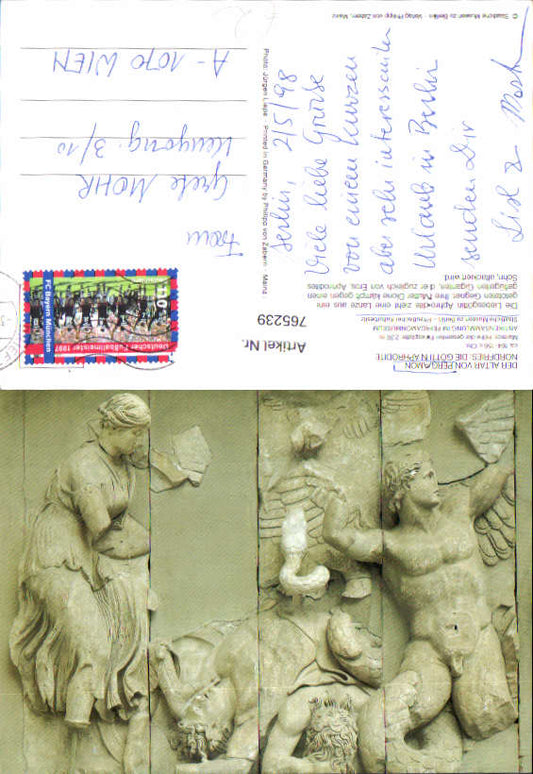 DER ALTAR VON PERGAMON
NORDFRIES: DIE GÖTTIN APHRODITE
ca. 164-156 v. Chr.
Marmor. Höhe der gesamten Friesplatte
ANTIKENSAMMLUNG IM PERGAMONMUSEUM
Staatliche Museen zu Berlin - Preußischer Kulturbesitz
Die Liebesgöttin Aphrodite zieht eine Lanze aus dem
getöteten Gegner. Ihre Mutter Dione kämpft gegen einen
geflügelten Giganten, der zugleich von Eros, Aphrodites
Sohn, attackiert wird.
Artikel Nr.
765239
Berlin, 2/5/98
Viele liebe Grüße
von einem kurzen
aber sehr interessanten
Urlaub in Berlin
senden Dir
Photo: Jürgen Liepe · Printed in Germany by Philipp von Zabern · Mainz
© Staatliche Museen zu Berlin · Verlag Philipp von Zabern, Mainz
FC Bayern München
Deutscher Fußballmeister 1997
110
Frau
Grete MOHR
3/10
A-1070 WIEN